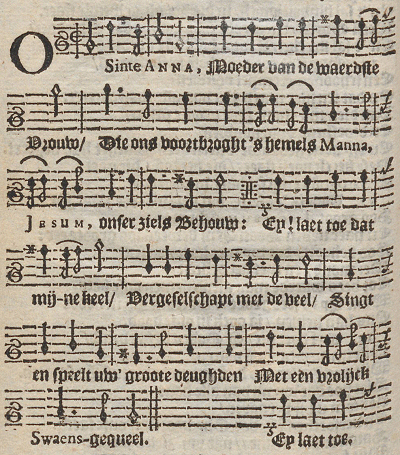 O Sinte ANNA, Moeder van de waerdste
Vrouw/ Die ons voortbroght 's hemels Manna,
JESUM, onser ziels Behouw: Ey! laet toe dat
mij-ne keel/ Vergeselschapt met de veel/ Singt
en speelt uw' groote deughden Met een vrolijck
Swaens-gequeel. Ey laet toe.